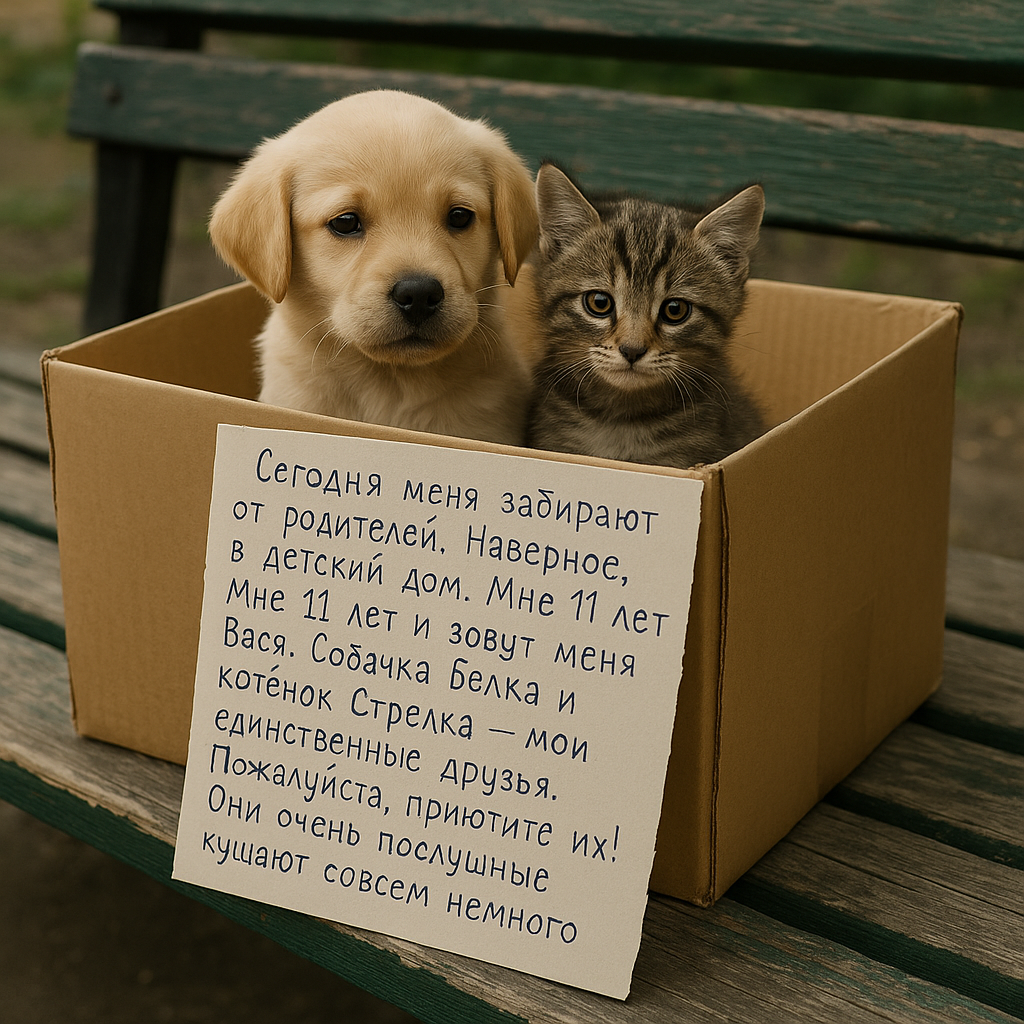 Сегодня меня забирают
от родителей. Наверное,
в детский дом. Мне 11 лет
Мне 11 лет и зовут меня
Вася. Собачка Белка и
котёнок Стрелка — мои
единственные друзья.
Пожалуйста, приютите их!
Они очень послушные
кушают совсем немного